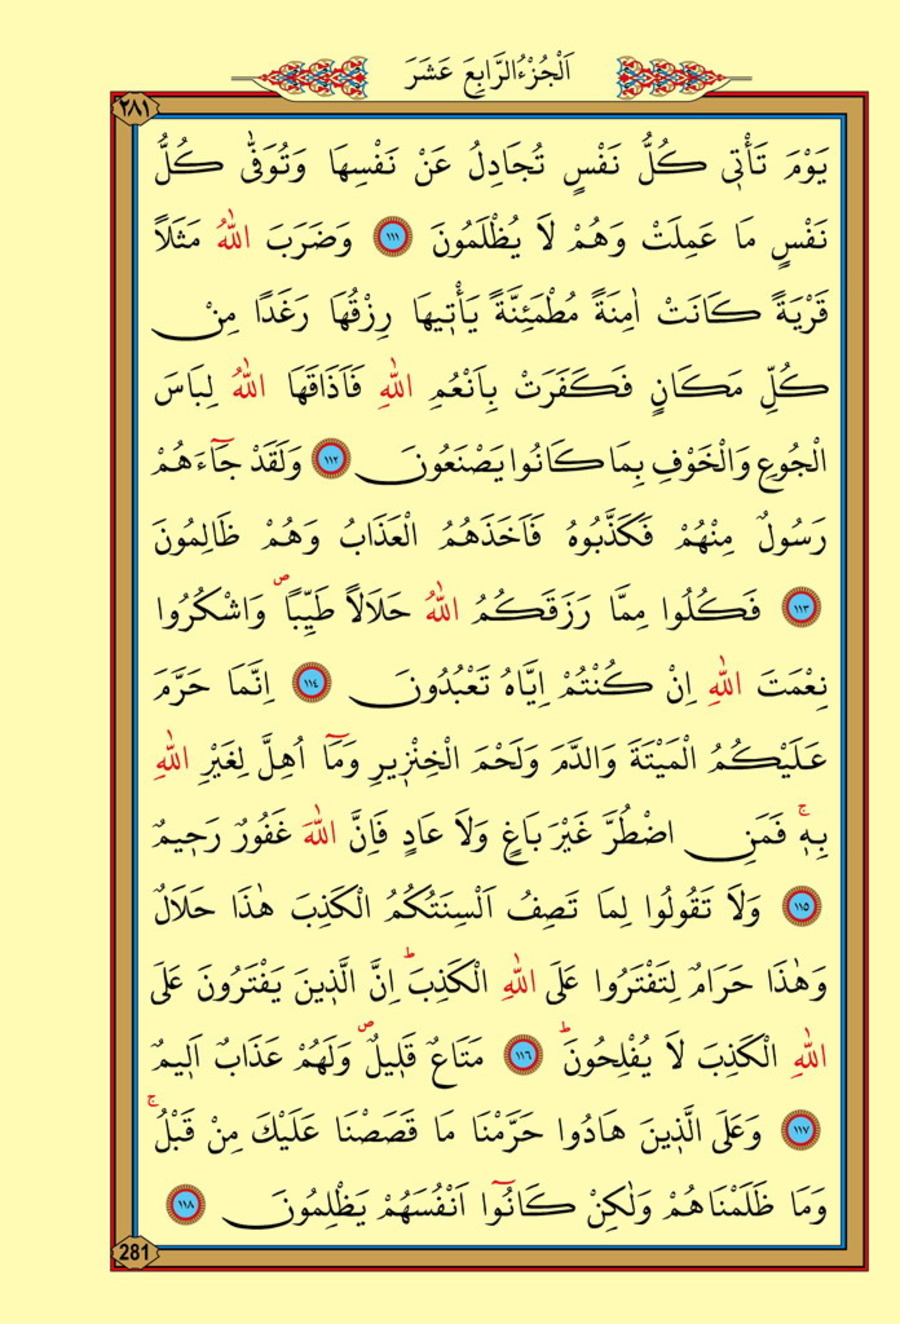 اَلْجُزْءُ الرَّابِعَ عَشَرَ
٢٨١
يَوْمَ تَأْتٖي كُلُّ نَفْسٍ تُجَادِلُ عَنْ نَفْسِهَا وَتُوَفّٰى كُلُّ
نَفْسٍ مَا عَمِلَتْ وَهُمْ لَا يُظْلَمُونَ ١١١ وَضَرَبَ اللّٰهُ مَثَلًا
قَرْيَةً كَانَتْ اٰمِنَةً مُطْمَئِنَّةً يَأْتٖيهَا رِزْقُهَا رَغَدًا مِنْ
كُلِّ مَكَانٍ فَكَفَرَتْ بِاَنْعُمِ اللّٰهِ فَاَذَاقَهَا اللّٰهُ لِبَاسَ
الْجُوعِ وَالْخَوْفِ بِمَا كَانُوا يَصْنَعُونَ ١١٢ وَلَقَدْ جَٓاءَهُمْ
رَسُولٌ مِنْهُمْ فَكَذَّبُوهُ فَاَخَذَهُمُ الْعَذَابُ وَهُمْ ظَالِمُونَ
١١٣ فَكُلُوا مِمَّا رَزَقَكُمُ اللّٰهُ حَلَالًا طَيِّبًاۖ وَاشْكُرُوا
نِعْمَتَ اللّٰهِ اِنْ كُنْتُمْ اِيَّاهُ تَعْبُدُونَ ١١٤ اِنَّمَا حَرَّمَ
عَلَيْكُمُ الْمَيْتَةَ وَالدَّمَ وَلَحْمَ الْخِنْزٖيرِ وَمَٓا اُهِلَّ لِغَيْرِ اللّٰهِ
بِهٖۚ فَمَنِ اضْطُرَّ غَيْرَ بَاغٍ وَلَا عَادٍ فَاِنَّ اللّٰهَ غَفُورٌ رَحٖيمٌ
١١٥ وَلَا تَقُولُوا لِمَا تَصِفُ اَلْسِنَتُكُمُ الْكَذِبَ هٰذَا حَلَالٌ
وَهٰذَا حَرَامٌ لِتَفْتَرُوا عَلَى اللّٰهِ الْكَذِبَؕ اِنَّ الَّذٖينَ يَفْتَرُونَ عَلَى
اللّٰهِ الْكَذِبَ لَا يُفْلِحُونَؕ ١١٦ مَتَاعٌ قَلٖيلٌۖ وَلَهُمْ عَذَابٌ اَلٖيمٌ
١١٧ وَعَلَى الَّذٖينَ هَادُوا حَرَّمْنَا مَا قَصَصْنَا عَلَيْكَ مِنْ قَبْلُۚ
وَمَا ظَلَمْنَاهُمْ وَلٰكِنْ كَانُٓوا اَنْفُسَهُمْ يَظْلِمُونَ ١١٨
281